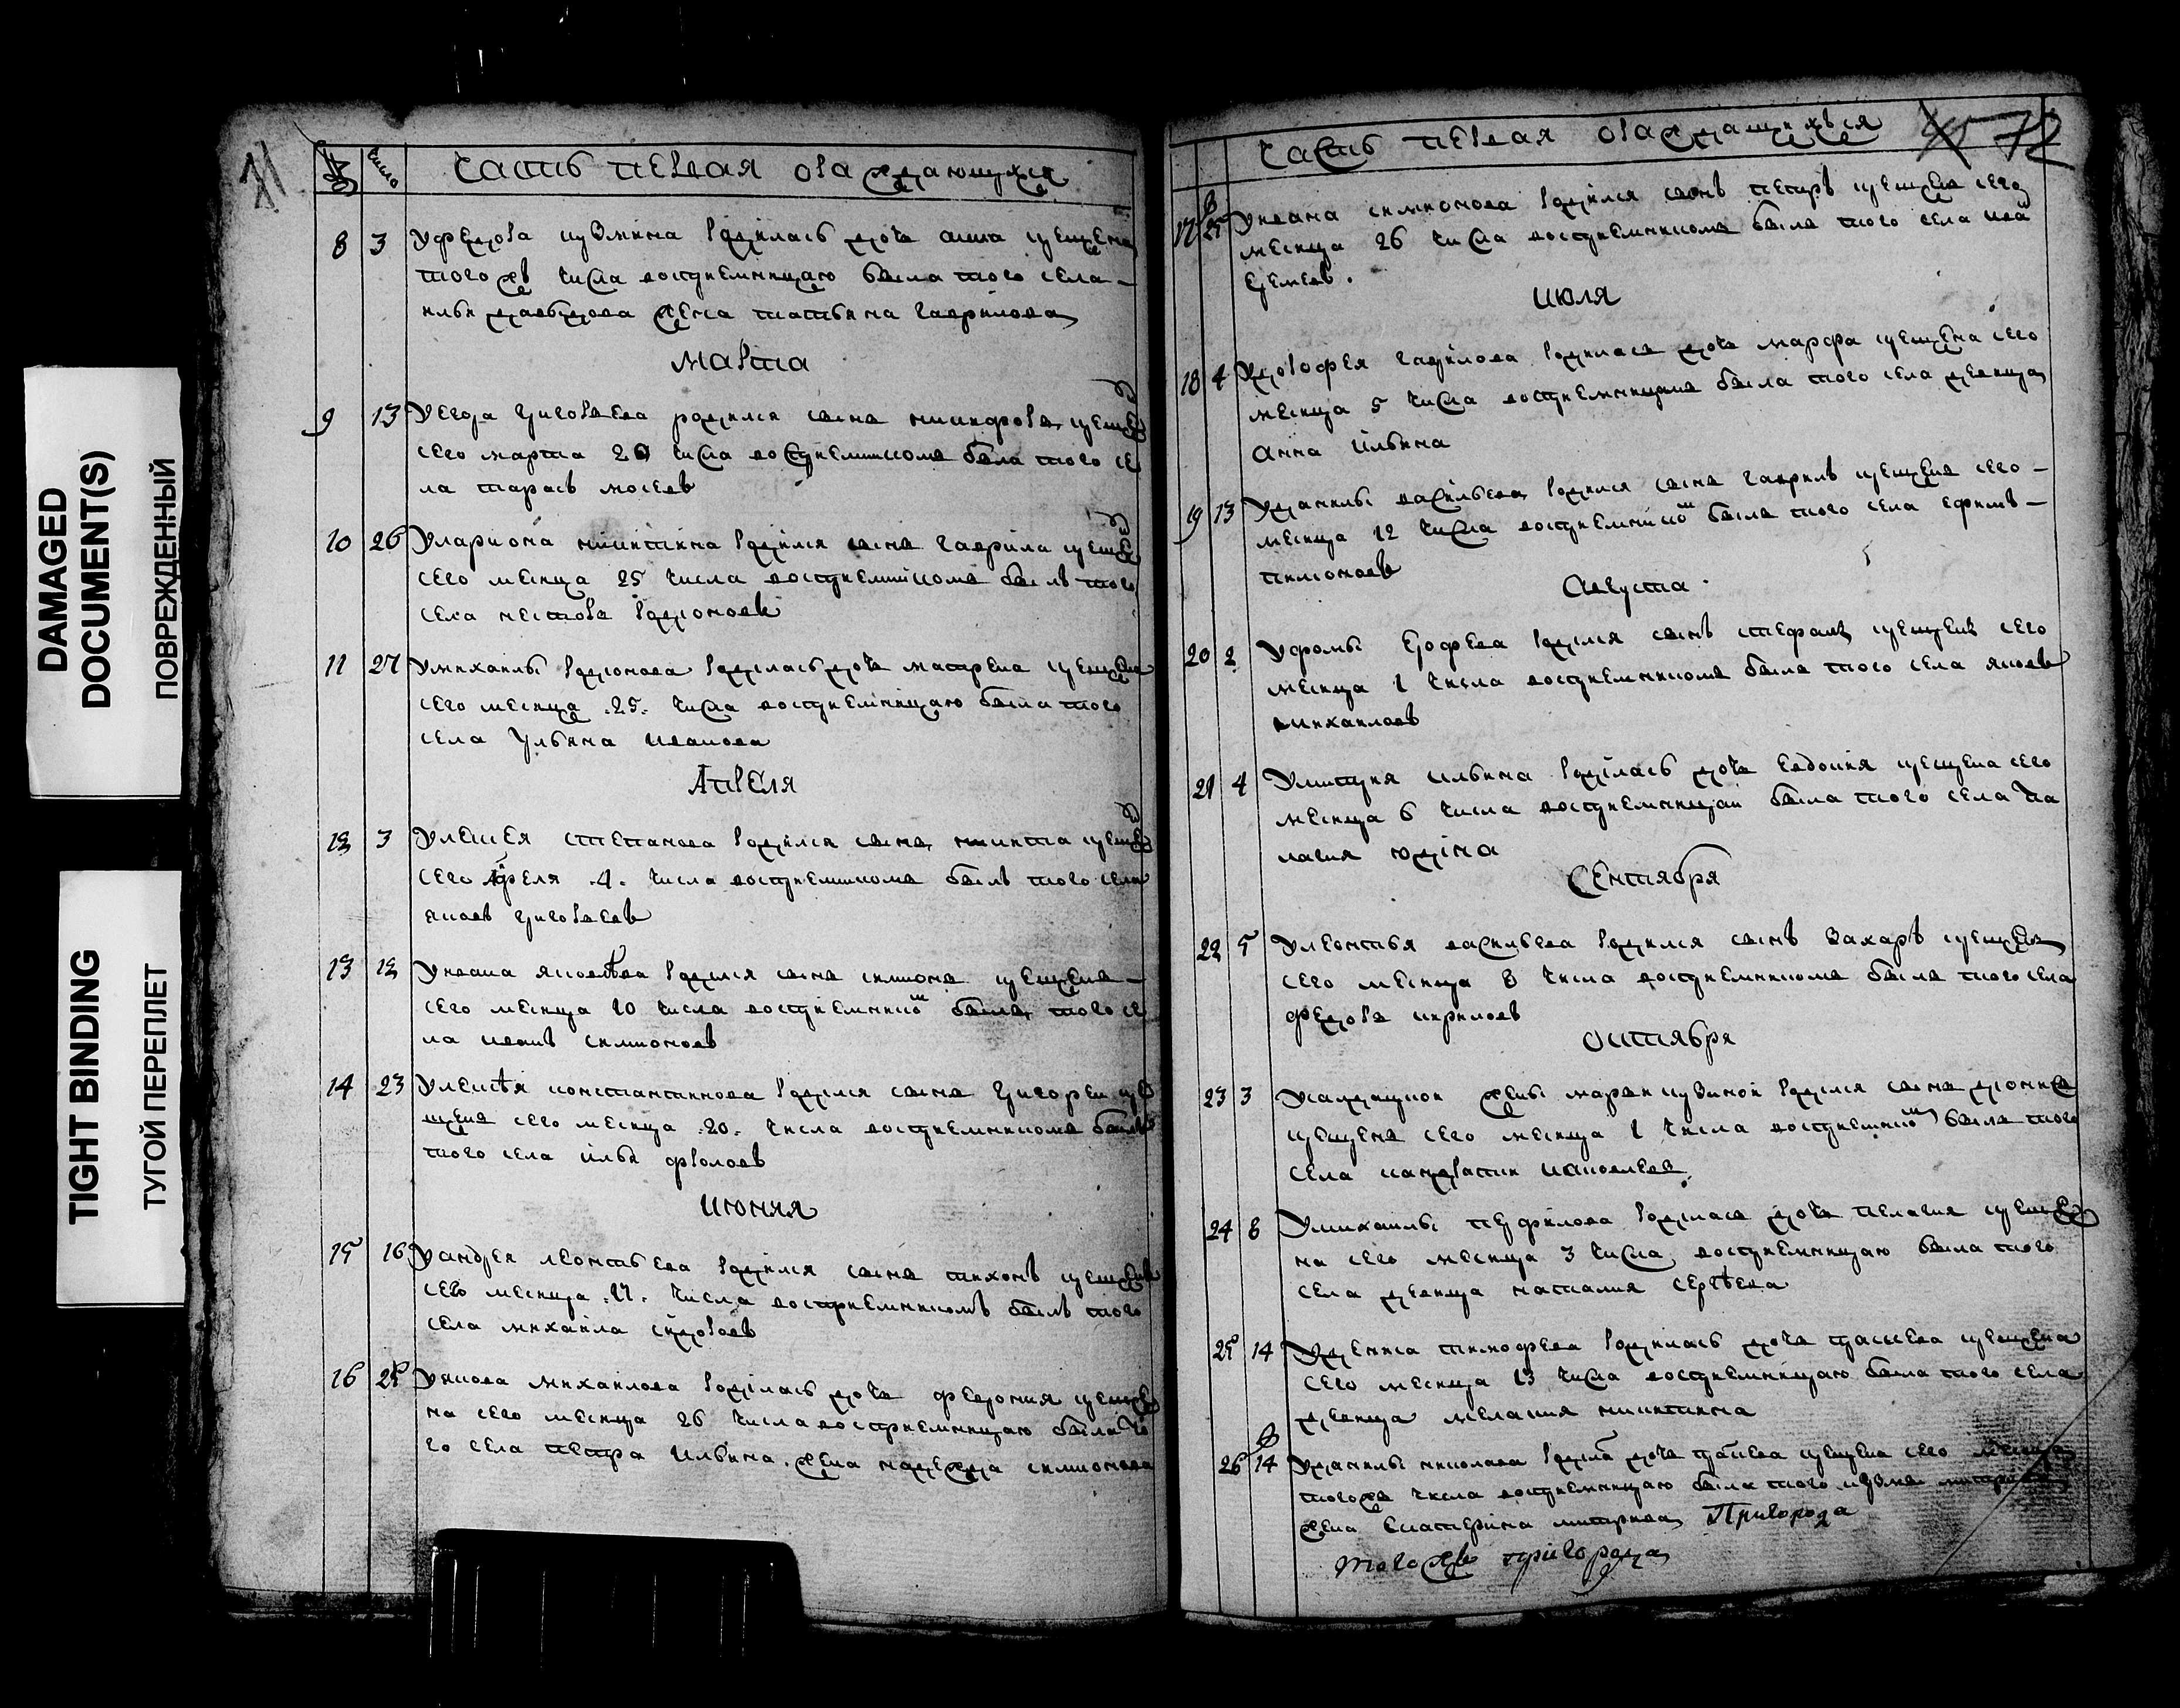 DAMAGED
DOCUMENT(S)
ПОВРЕЖДЕННЫЙ
TIGHT BINDING
ТУГОЙ ПЕРЕПЛЕТ
71
число
часть первая ораждающихся
8 3 У федора кузмина родилась дочь анна крещена
того жъ числа восприемницею была того села
ильи давыдова жена татьяна гаврилова
марта
9 13 У егора григорьева родился сынъ никифоръ креще
сего марта числа восприемникомъ былъ того се
ла тарасъ мосеевъ
10 26 У лариона никитина родился сынъ гаврила креще
сего месяца 25 числа восприемникомъ былъ того
села несторъ родионовъ
11 27 У михаилы родионова родилась дочь матрена крещена
сего месяца .25. числа восприемницею была того
села ульяна иванова
Апреля
12 3 У степанова родился сынъ никита креще
сего апреля .4. числа восприемникомъ былъ того села
яковъ григорьевъ
13 12 У ивана яковлева родился сынъ симионъ крещенъ
сего месяца 10 числа восприемником былъ того се
ла иванъ симионовъ
14 23 У константинова родился сынъ григорей кре
щенъ сего месяца .20. числа восприемникомъ былъ
того села илья фроловъ
июня
15 16 У андрея леонтьева родился сынъ тихонъ крещенъ
сего месяца числа восприемникомъ былъ того
села михаила сидоровъ
16 25 У якова михаилова родилась дочь феврония креще
на сего месяца 26 числа восприемницею была то
го села петра ильина жена надежда симионова
72
часть первая ораждающихъся
17 25 У ивана симионова родился сынъ петръ крещенъ сего
месяца 26 числа восприемникомъ былъ того села ива
еремеевъ.
июля
18 4 У дорофея гаврилова родилась дочь марфа крещена сего
месяца 5 числа восприемницею была того села девица
анна ильина
19 13 У данилы васильева родился сынъ гаврилъ крещенъ сего
месяца 12 числа восприемником былъ того села ефимъ
тимоновъ
Августа
20 2 У фомы ерофеева родился сынъ стефанъ крещенъ сего
месяца 1 числа восприемникомъ былъ того села яковъ
михаиловъ
21 4 У дмитрия ильина родилась дочь евдокия крещена сего
месяца 6 числа восприемницей была того села па
лагия юдина
Сентября
22 5 У леонтья васильева родился сынъ захаръ крещенъ
сего месяца 8 числа восприемникомъ былъ того села
федоръ кириловъ
Октября
23 3 У салдацкой жены марьи кузиной родился сынъ
крещенъ сего месяца 1 числа восприемником былъ того
села кандратий яковлевъ
24 8 У михаилы перфилова родилась дочь пелагия креще
на сего месяца 3 числа восприемницею была того
села девица наталия сергеева
25 14 У дениса тимофеева родилась дочь прасковья крещена
сего месяца 13 числа восприемницею была того села
девица мелания никитина
26 14 У данилы николаева родилась дочь крещена сего месяца
того жъ числа восприемницею была того кузма
жена екатерина Пригорода
того жъ пригорода